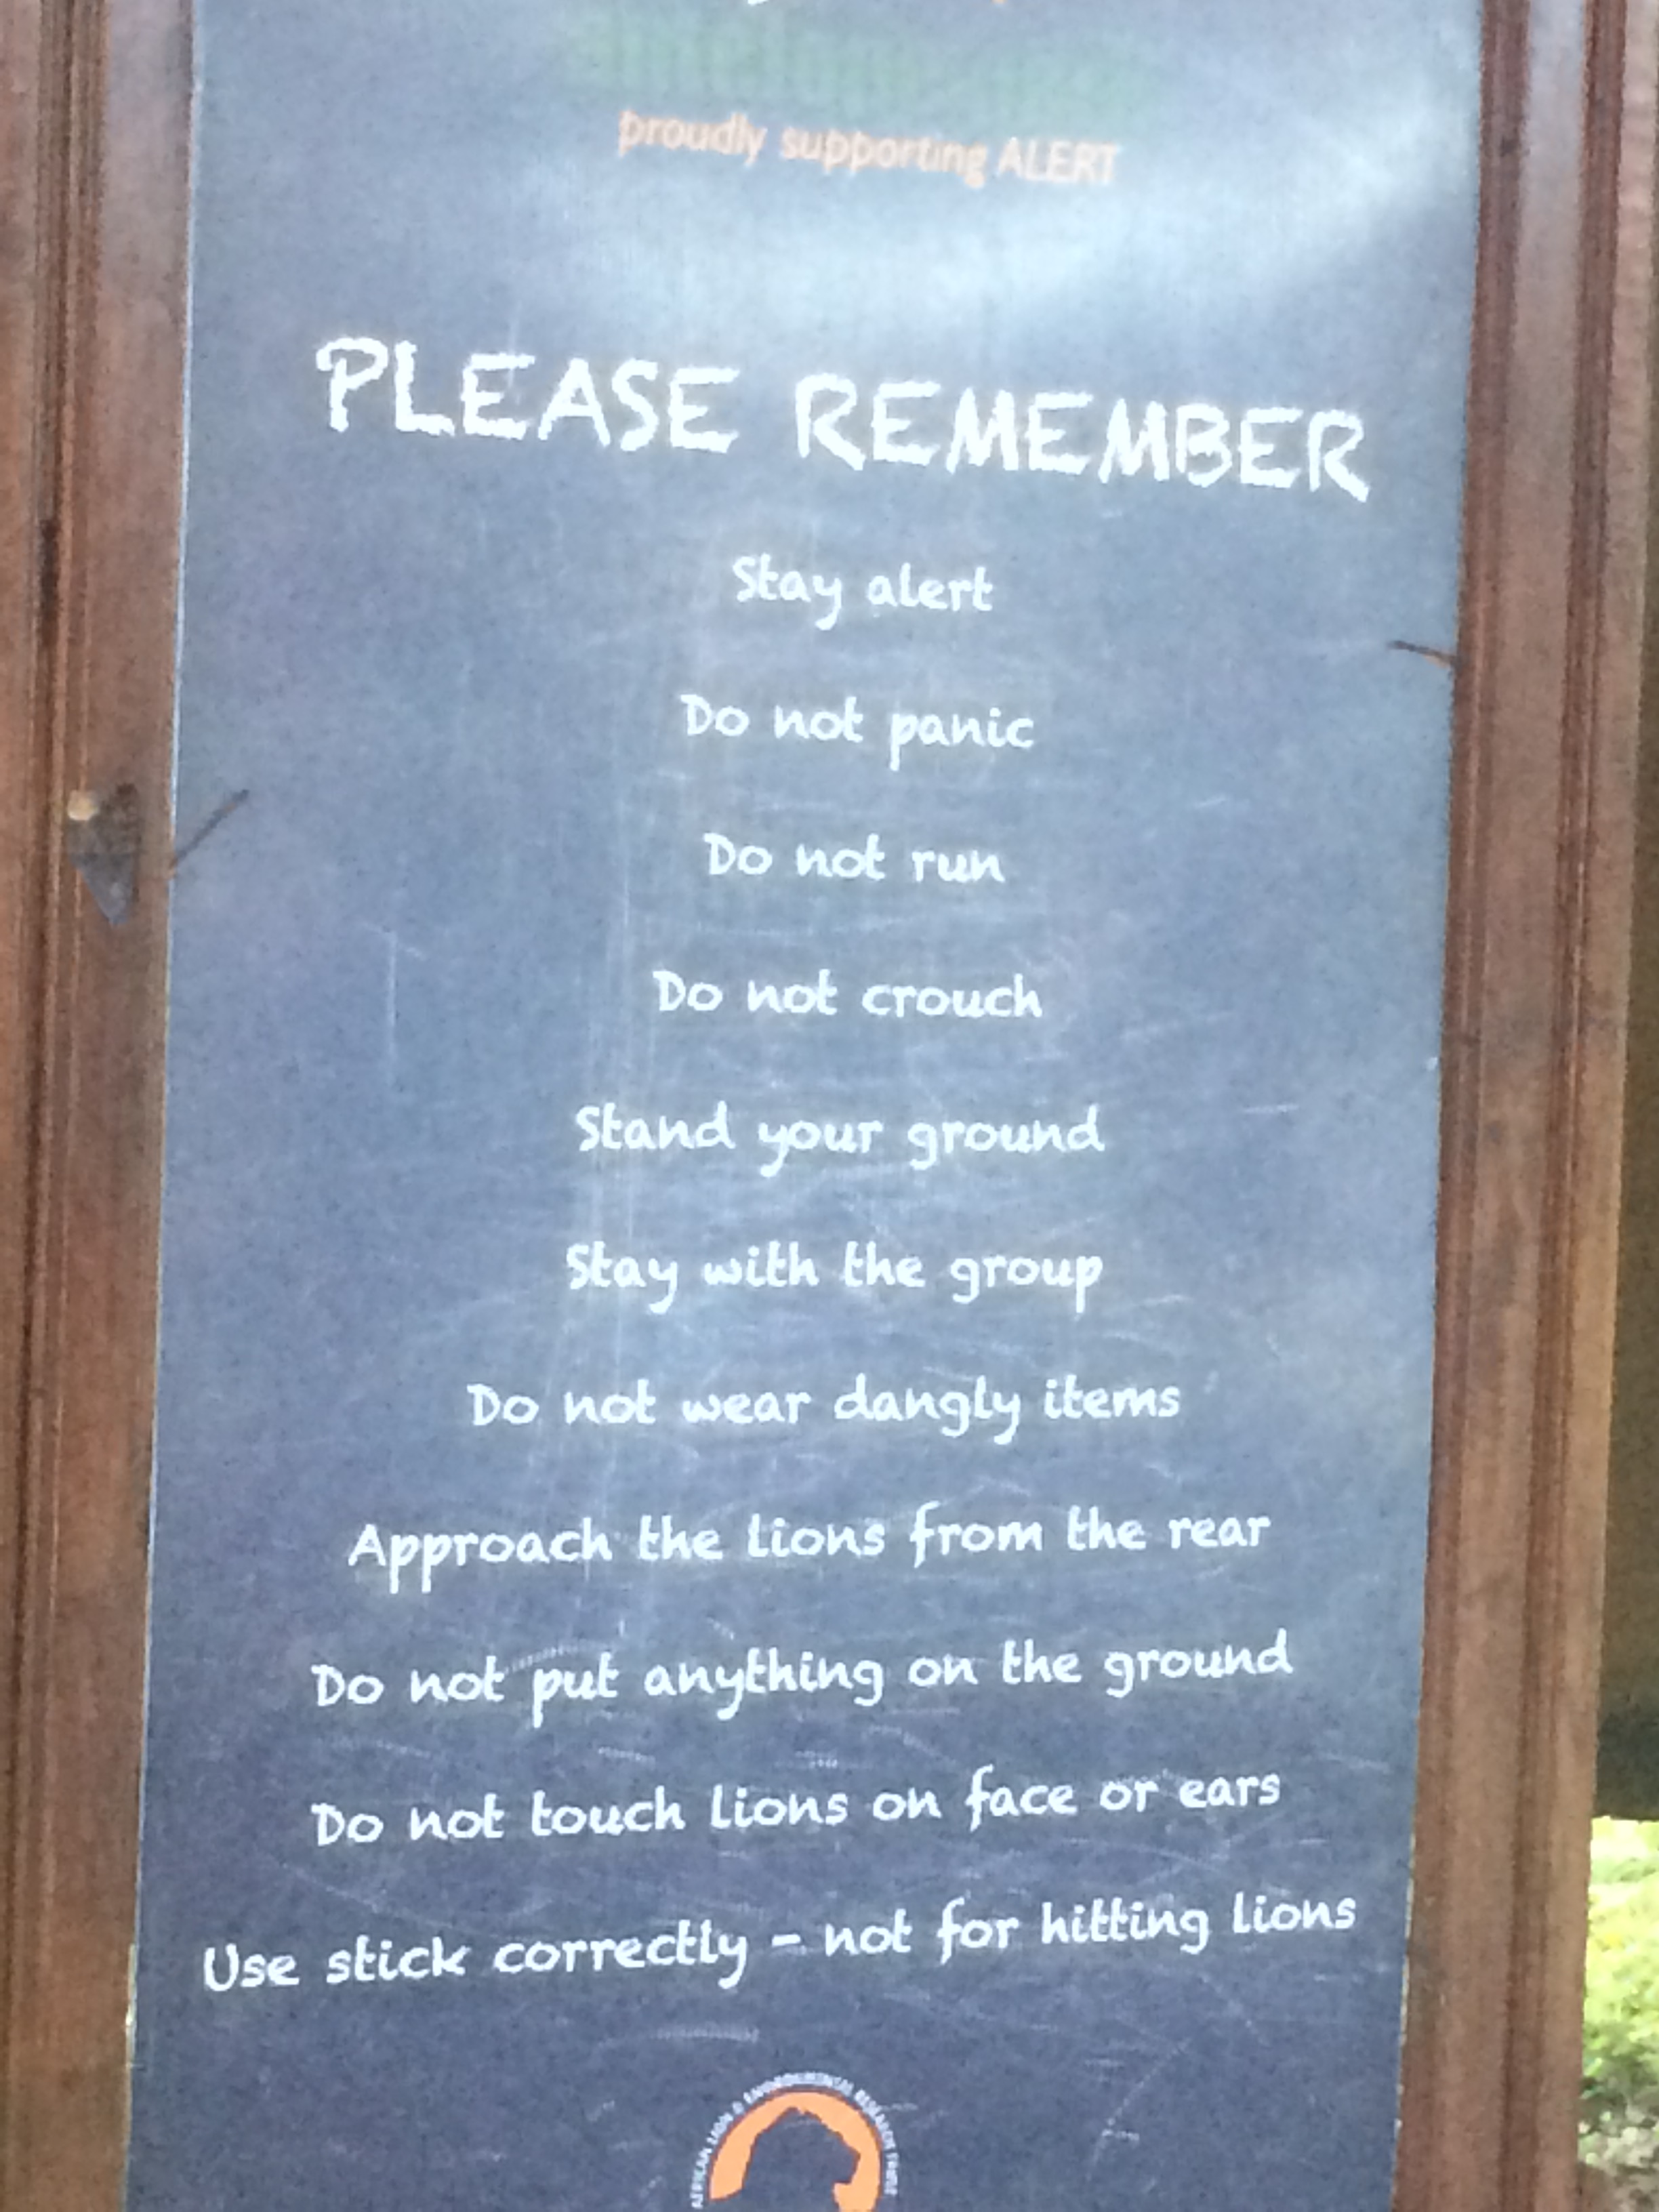 proudly supporting ALERT
PLEASE REMEMBER
Stay alert
Do not panic
Do not run
Do not crouch
Stand your ground
Stay with the group
Do not wear dangly items
Approach the lions from the rear
Do not put anything on the ground
Do not touch lions on face or ears
Use stick correctly - not for hitting lions
AFRICAN LION & ENVIRONMENTAL RESEARCH TRUST